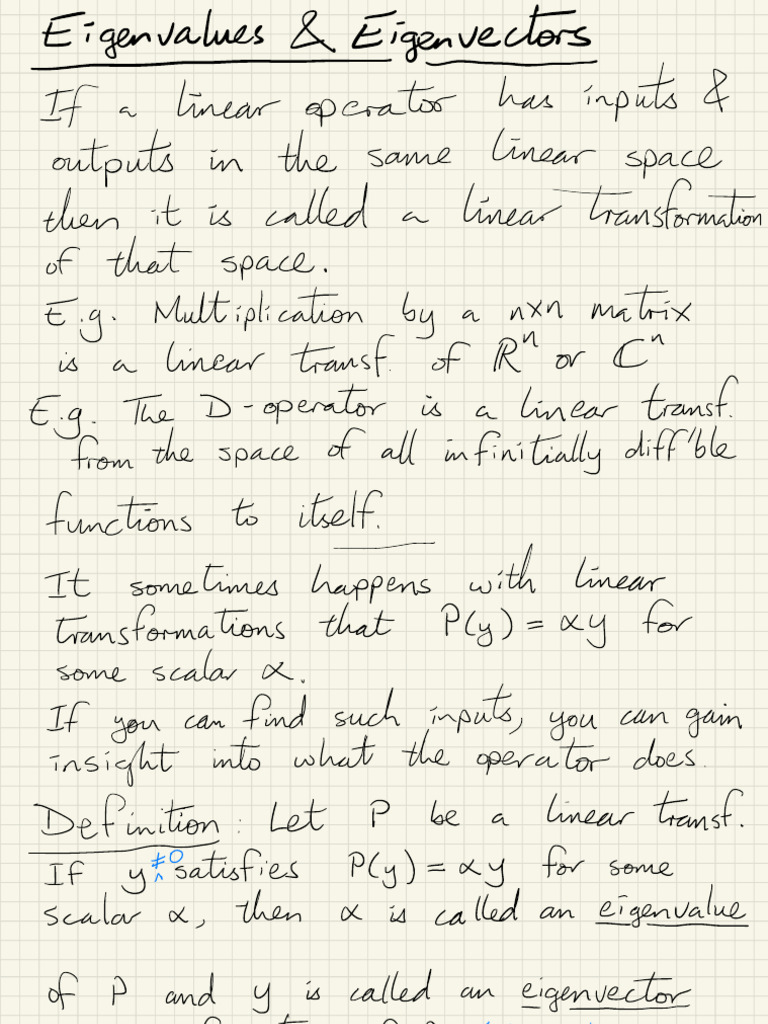 Eigenvalues & Eigenvectors
If a linear operator has inputs &
outputs in the same linear space
then it is called a linear transformation
of that space.
E.g. Multiplication by a n×n matrix
is a linear transf. of ℝⁿ or ℂⁿ
E.g. The D-operator is a linear transf.
from the space of all infinitially diff'ble
functions to itself.
It sometimes happens with linear
transformations that P(y) = αy for
some scalar α.
If you can find such inputs, you can gain
insight into what the operator does.
Definition: Let P be a linear transf.
If y ≠0 satisfies P(y) = αy for some
scalar α, then α is called an eigenvalue
of P and y is called an eigenvector